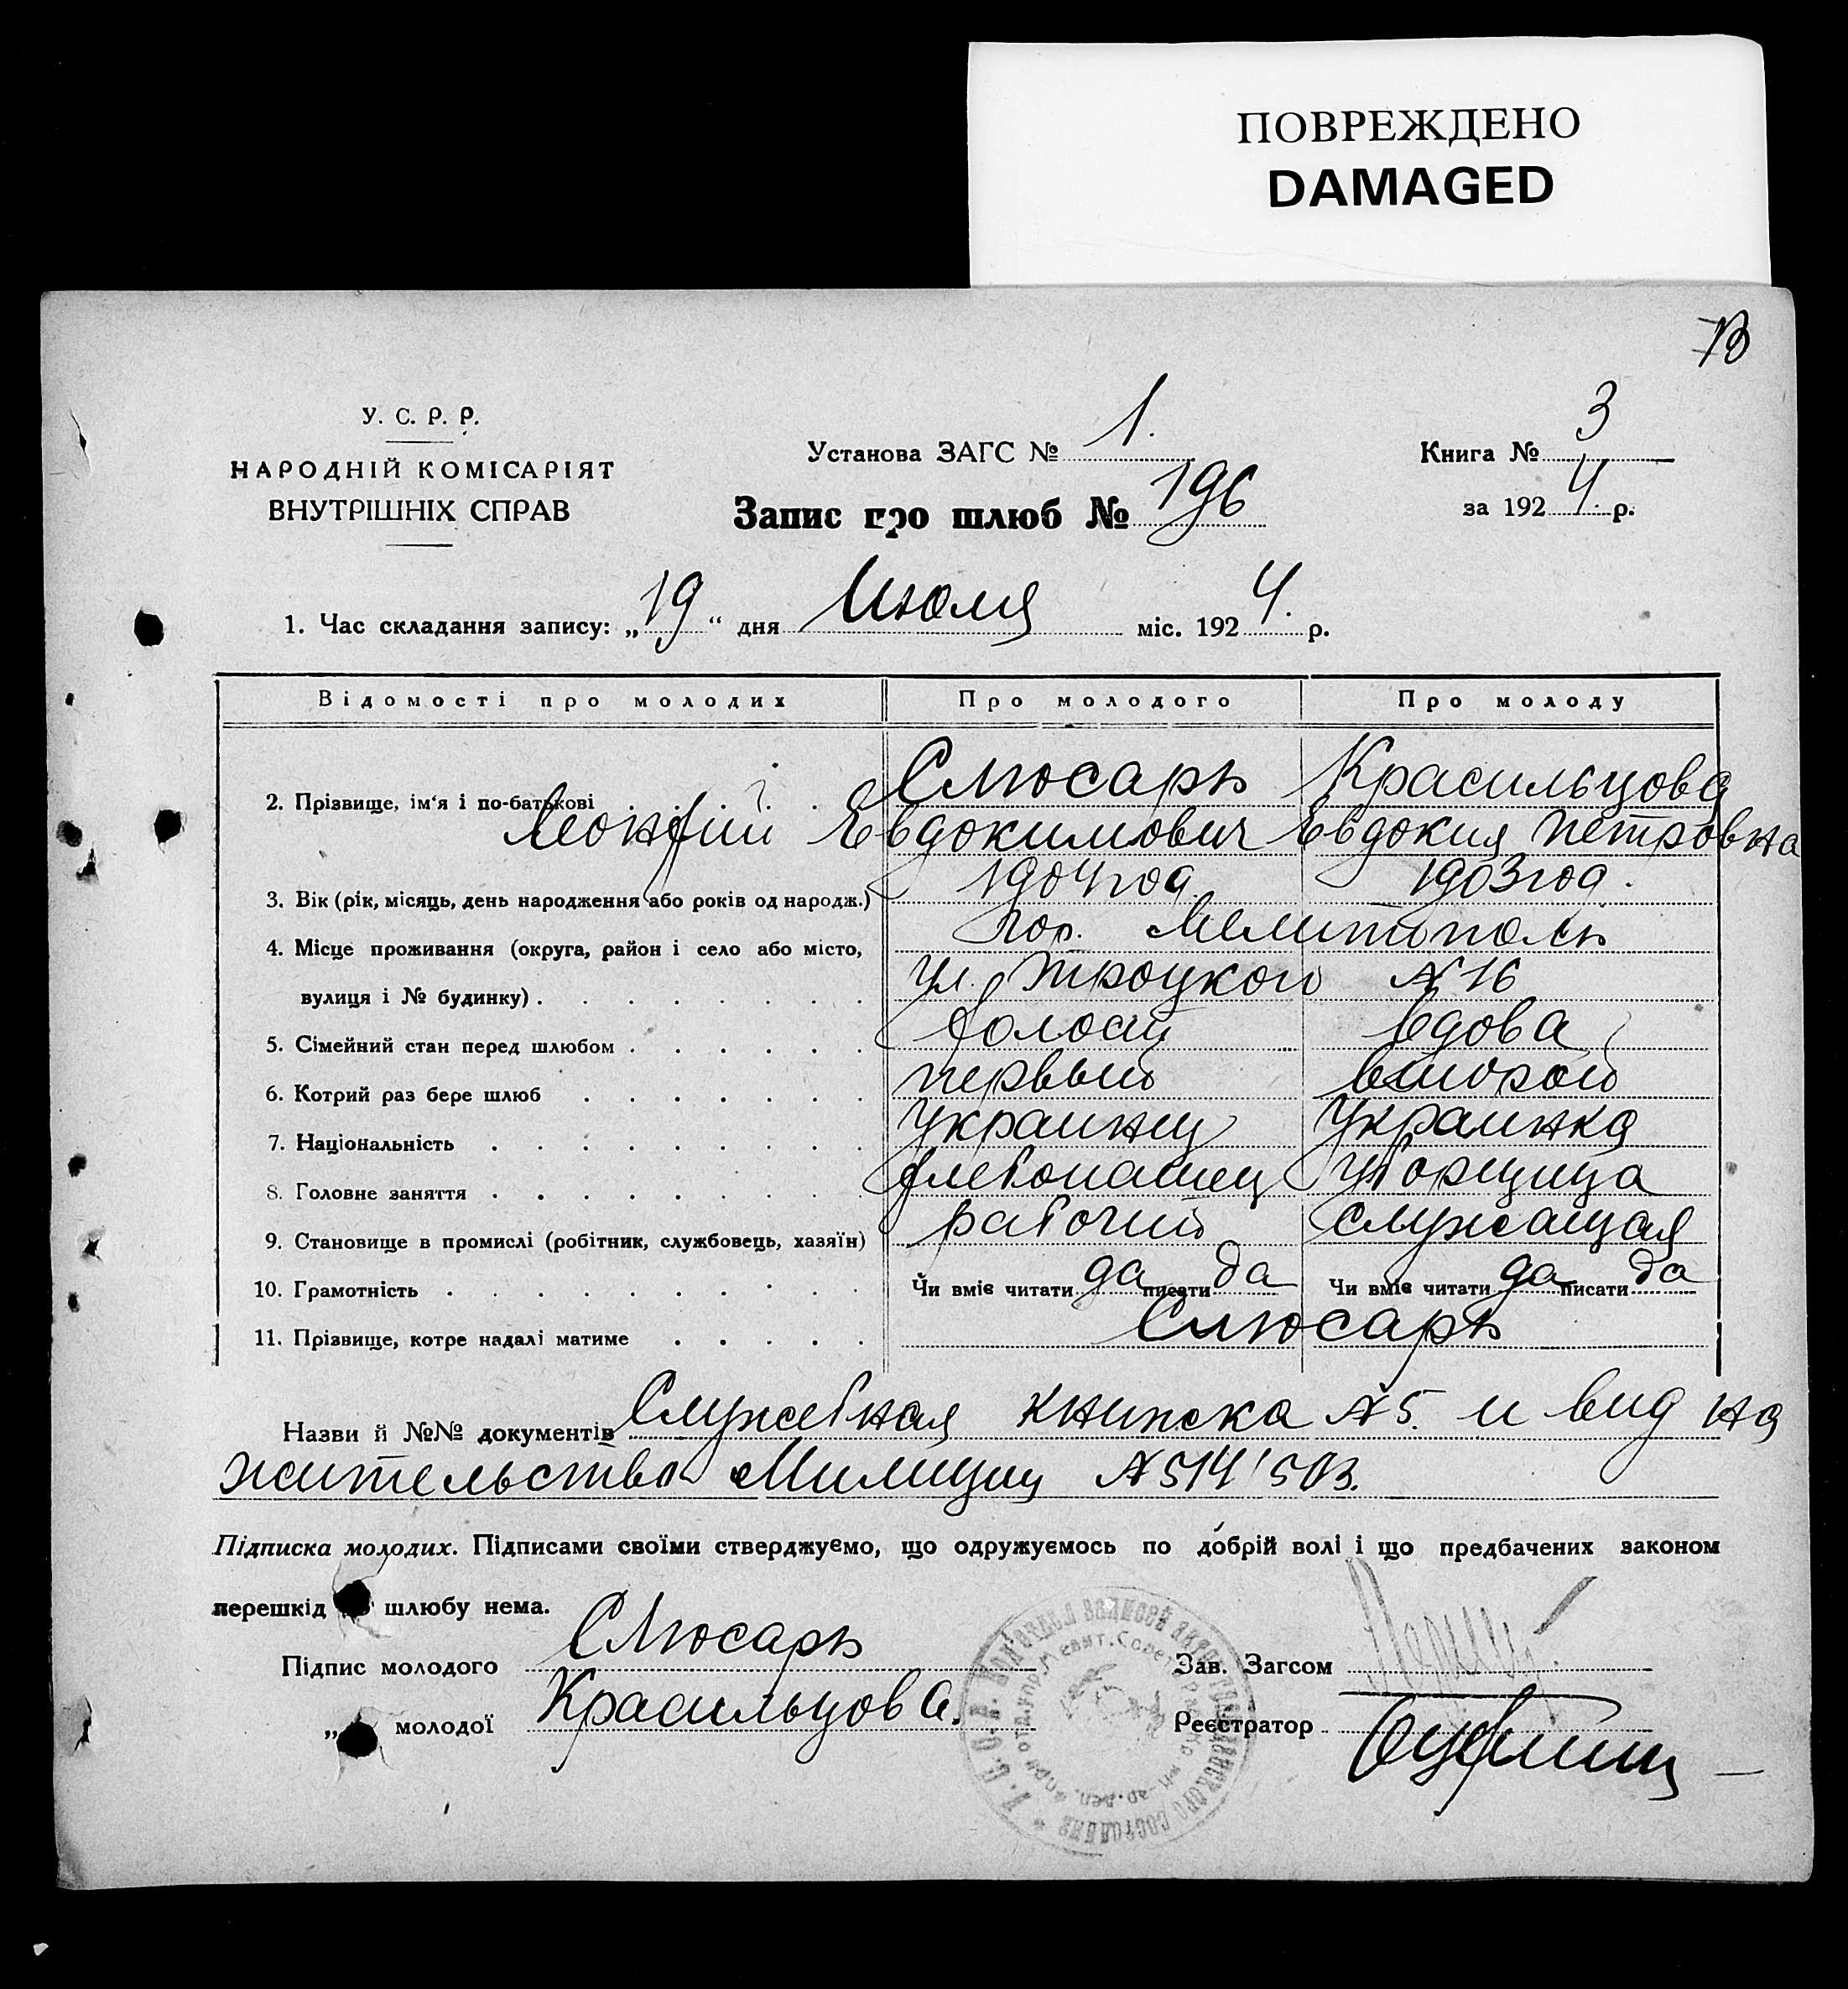 ПОВРЕЖДЕНО
DAMAGED
У. С. Р. Р.
НАРОДНІЙ КОМІСАРІЯТ
ВНУТРІШНІХ СПРАВ
Установа ЗАГС № 1.
Книга № 3
Запис про шлюб № 196
за 1924. р.
1. Час складання запису: „19“ дня Июля міс. 1924. р.
Відомості про молодих Про молодого Про молоду
2. Прізвище, ім'я і по-батькові Слюсарь Красильцова
Леонтий Евдокимович Евдокия Петровна
3. Вік (рік, місяць, день народження або років од народж.) 1904 год. 1903 год.
4. Місце проживання (округа, район і село або місто, гор. Мелитополь
вулиця і № будинку) ул. Троцкого № 16
5. Сімейний стан перед шлюбом холост вдова
6. Котрий раз бере шлюб первый второй
7. Національність украинец украинка
8. Головне заняття хлебопашец уборщица
9. Становище в промислі (робітник, службовець, хазяїн) рабочий служащая
10. Грамотність Чи вміє читати да писати да Чи вміє читати да писати да
11. Прізвище, котре надалі матиме Слюсарь
Назви й №№ документів Служебная книжка № 5. и вид на
жительство Милиции № 514/503.
Підписка молодих. Підписами своїми стверджуємо, що одружуємось по добрій волі і що предбачених законом
перешкід шлюбу нема.
Підпис молодого Слюсарь
Зав. Загсом
„ молодої Красильцова.
Реєстратор